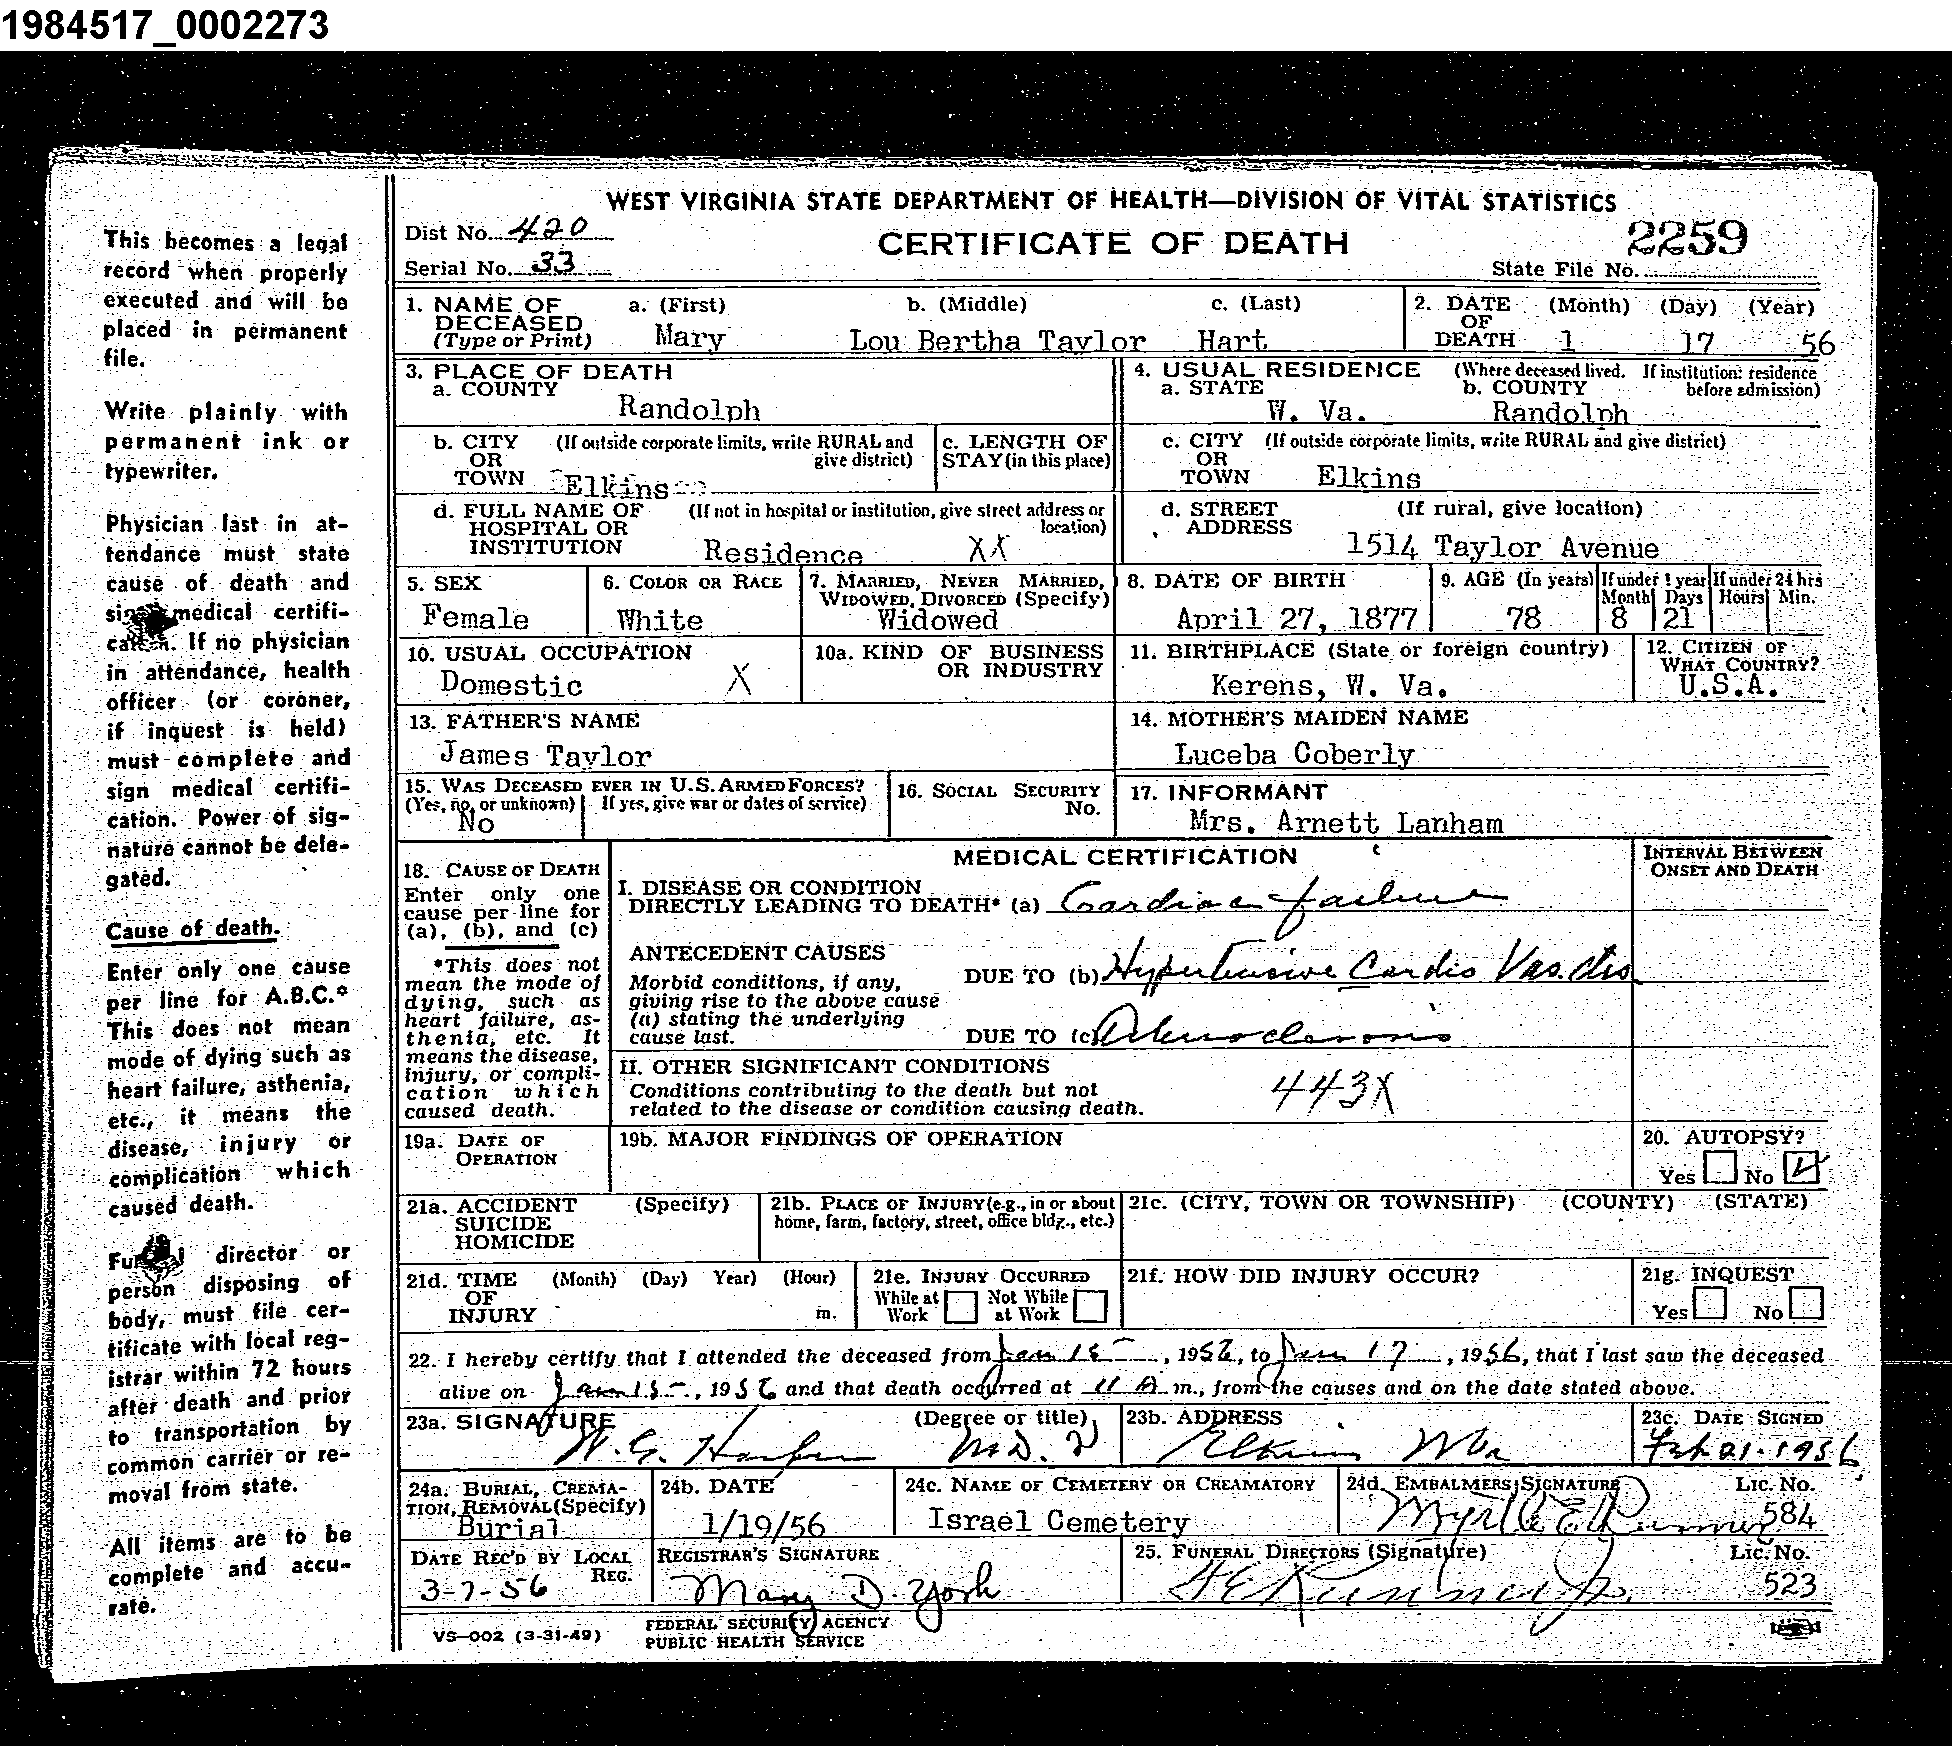 1984517_0002273
This becomes a legal
record when properly
executed and will be
placed in permanent
file.
Write plainly with
permanent ink or
typewriter.
Physician last in at-
tendance must state
cause of death and
medical certifi-
If no physician
in attendance, health
officer (or coroner,
if inquest is held)
must complete and
sign medical certifi-
cation. Power of sig-
nature cannot be dele-
gated.
Cause of death.
Enter only one cause
per line for A.B.C.*
This does not mean
mode of dying such as
heart failure, asthenia,
etc., it means the
disease, injury or
complication which
caused death.
director or
person disposing of
body, must file cer-
tificate with local reg-
istrar within 72 hours
after death and prior
to transportation by
common carrier or re-
moval from state.
All items are to be
complete and accu-
rate.
WEST VIRGINIA STATE DEPARTMENT OF HEALTH—DIVISION OF VITAL STATISTICS
Dist No. 420
CERTIFICATE OF DEATH
2259
Serial No. 33
State File No.
1. NAME OF DECEASED (Type or Print) a. (First) b. (Middle) c. (Last)
Mary Lou Bertha Taylor Hart
2. DATE OF DEATH (Month) (Day) (Year)
1 17 56
3. PLACE OF DEATH
a. COUNTY
Randolph
4. USUAL RESIDENCE (Where deceased lived. If institution: residence before admission)
a. STATE b. COUNTY
W. Va. Randolph
b. CITY OR TOWN (If outside corporate limits, write RURAL and give district)
Elkins
c. LENGTH OF STAY (in this place)
c. CITY OR TOWN (If outside corporate limits, write RURAL and give district)
Elkins
d. FULL NAME OF HOSPITAL OR INSTITUTION (If not in hospital or institution, give street address or location)
Residence XX
d. STREET ADDRESS (If rural, give location)
1514 Taylor Avenue
5. SEX
Female
6. COLOR OR RACE
White
7. MARRIED, NEVER MARRIED, WIDOWED, DIVORCED (Specify)
Widowed
8. DATE OF BIRTH
April 27, 1877
9. AGE (In years)
78
If under 1 year Month Days
8 21
If under 24 hrs Hours Min.
10. USUAL OCCUPATION
Domestic X
10a. KIND OF BUSINESS OR INDUSTRY
11. BIRTHPLACE (State or foreign country)
Kerens, W. Va.
12. CITIZEN OF WHAT COUNTRY?
U.S.A.
13. FATHER'S NAME
James Taylor
14. MOTHER'S MAIDEN NAME
Luceba Coberly
15. WAS DECEASED EVER IN U.S. ARMED FORCES?
(Yes, no, or unknown) If yes, give war or dates of service)
No
16. SOCIAL SECURITY No.
17. INFORMANT
Mrs. Arnett Lanham
18. CAUSE OF DEATH
Enter only one
cause per line for
(a), (b), and (c)
*This does not
mean the mode of
dying, such as
heart failure, as-
thenia, etc. It
means the disease,
injury, or compli-
cation which
caused death.
MEDICAL CERTIFICATION
INTERVAL BETWEEN ONSET AND DEATH
I. DISEASE OR CONDITION
DIRECTLY LEADING TO DEATH* (a) Cardiac failure
ANTECEDENT CAUSES
Morbid conditions, if any,
giving rise to the above cause
(a) stating the underlying
cause last.
DUE TO (b) Hypertensive Cardio Vas. dis
DUE TO (c)
II. OTHER SIGNIFICANT CONDITIONS
Conditions contributing to the death but not
related to the disease or condition causing death.
443X
19a. DATE OF OPERATION
19b. MAJOR FINDINGS OF OPERATION
20. AUTOPSY?
Yes No
21a. ACCIDENT SUICIDE HOMICIDE (Specify)
21b. PLACE OF INJURY (e.g., in or about
home, farm, factory, street, office bldg., etc.)
21c. (CITY, TOWN OR TOWNSHIP) (COUNTY) (STATE)
21d. TIME OF INJURY (Month) (Day) Year) (Hour) m.
21e. INJURY OCCURRED
While at Work Not While at Work
21f. HOW DID INJURY OCCUR?
21g. INQUEST
Yes No
22. I hereby certify that I attended the deceased from Jan 15, 1956, to Jan 17, 1956, that I last saw the deceased
alive on Jan 15, 1956 and that death occurred at 11 A m., from the causes and on the date stated above.
23a. SIGNATURE (Degree or title)
W. G. Harper M.D.
23b. ADDRESS
Elkins W Va
23c. DATE SIGNED
Feb 21-1956
24a. BURIAL, CREMATION, REMOVAL (Specify)
Burial
24b. DATE
1/19/56
24c. NAME OF CEMETERY OR CREAMATORY
Israel Cemetery
24d. EMBALMERS SIGNATURE Lic. No.
Myrtle E Runner 584
DATE REC'D BY LOCAL REG.
3-7-56
REGISTRAR'S SIGNATURE
Mary D. York
25. FUNERAL DIRECTORS (Signature) Lic. No.
H E Runner Jr. 523
VS-002 (3-31-49)
FEDERAL SECURITY AGENCY
PUBLIC HEALTH SERVICE